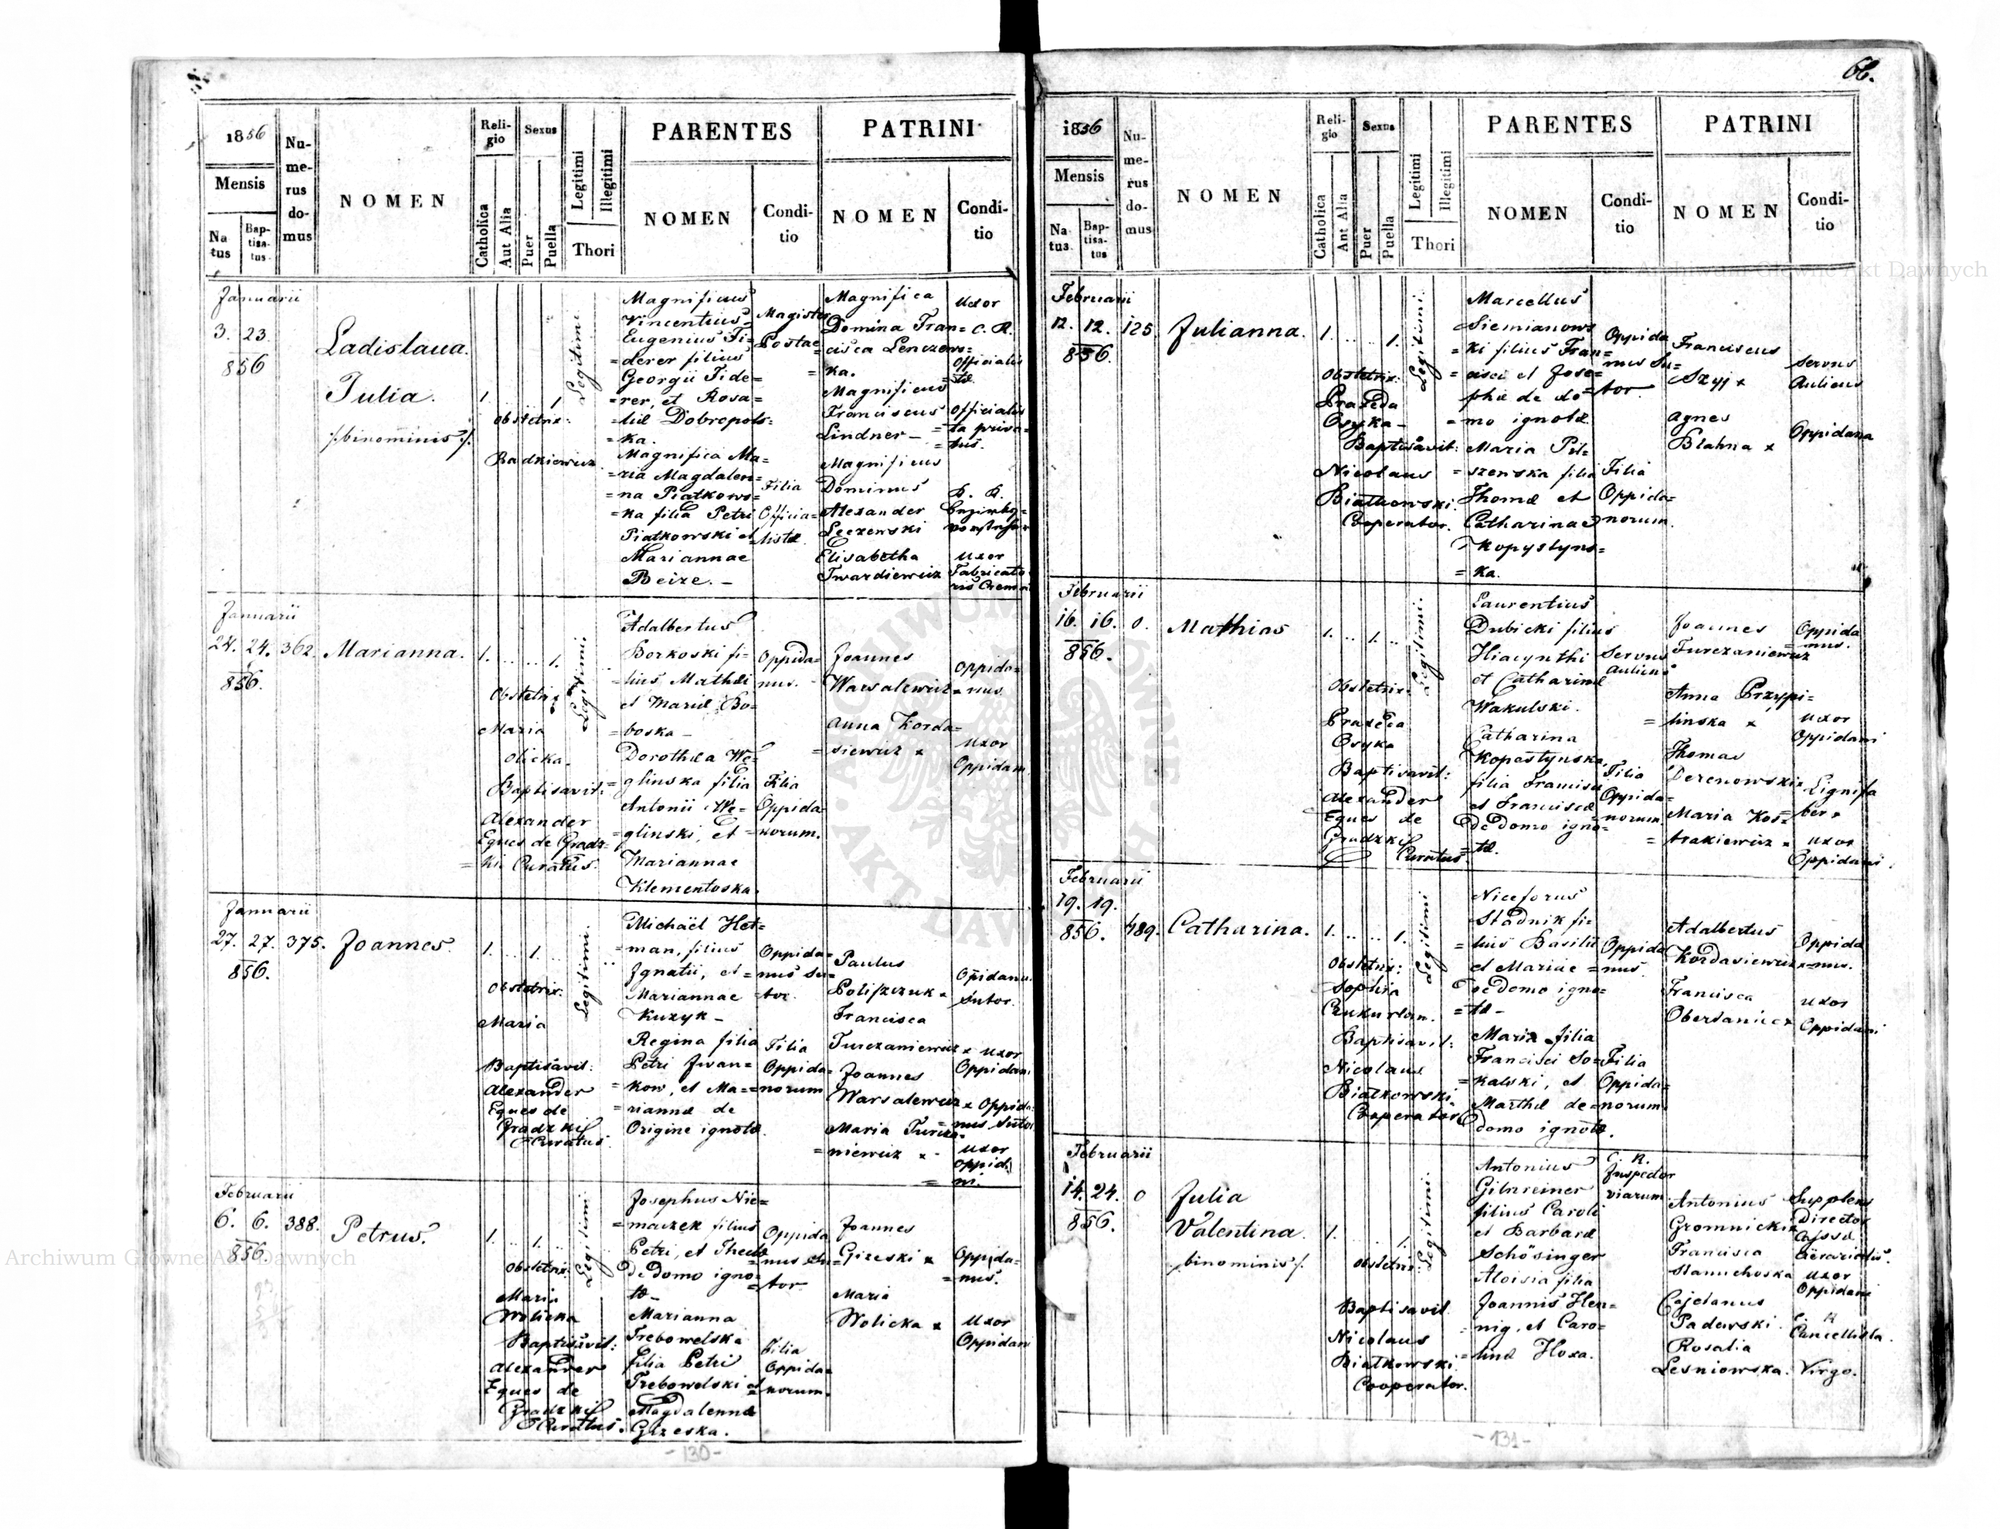 1856
Mensis
Na
tus
Bap-
tisa-
tus.
Nu-
me-
rus
do-
mus
NOMEN
Reli-
gio
Catholica
Aut Alia
Sexus
Puer
Puella
Legitimi
Illegitimi
Thori
PARENTES
NOMEN
Condi-
tio
PATRINI
NOMEN
Condi-
tio
Januarii
3. 23.
856
Ladislaua
Julia.
/:binominis:/.
1. 1.
Obstetrix:
Badkiewicz
Legitimi
Magnificus
Vincentius
Eugenius Fi=
=derer filius
Georgii Fide=
=rer, et Rosa=
=liæ Dobropols=
=ka.
Magnifica Ma=
=ria Magdalen=
=na Piatkows=
=ka filia Petri
Piatkowski et
Mariannae
Beize. -
Magister
Postae
Filia
Officia=
=listæ
Magnifica
Domina Fran=
=cisca Lenczews=
=ka.
Magnificus
Franciscus
Lindner -
Magnificus
Dominus
Alexander
Leczewski
Elisabetha
Twardiewicz
Uxor
C. R.
Officialis
=tæ
Officialis
=ta priva=
=tus.
K. K.
Uxor
Fabricato
Januarii
24. 24. 362.
856.
Marianna.
1. .. .. 1.
Obstetrix
Maria
olicka.
Baptisavit:
Alexander
Eques de Gradz=
=ki Curatus.
Legitimi
Adalbertus
Borkoski fi=
=lius Mathæi
et Mariæ Bo=
=boska -
Dorothea We=
=glinska filia
Antonii We=
=glinski, et
Mariannae
Klementoska.
Oppida=
nus.
Filia
Oppida=
=norum.
Joannes
Warsalewicz x
Anna Korda=
=siewicz x
Oppida=
nus
Uxor
Oppidani
Januarii
27. 27. 375.
856.
Joannes.
1. .. 1.
Obstetrix.
Maria
Baptisavit:
Alexander
Eques de
Gradzki
Curatus.
Legitimi
Michaël Het=
=man, filius
Ignatii, et
Mariannae
Kuzyk -
Regina filia
Petri Iwan=
=kow, et Ma=
=riannæ de
Origine ignotæ.
Oppida=
=nus Su=
=tor.
Filia
Oppida=
=norum
Paulus
Poliszczuk x
Francisca
Turczaniewicz x
Joannes
Warsalewicz x
Maria Turcza=
=niewicz x
Opidanus
Sutor.
Uxor
Oppidani
Oppida=
=nus Sutor
Uxor
Oppida
=ni.
Februarii
6. 6. 388.
856.
Petrus.
1. .. 1.
Obstetrix
Maria
Wolicka
Baptisavit:
Alexander
Eques de
Gradzki
Curatus.
Legitimi
Josephus Nie=
=maczek filius
Petri, et Theclæ
de domo igno=
tæ -
Marianna
Trebowelska
filia Petri
Trebowelski et
Magdalennæ
Gizeska.
Oppida
=nus Su=
=tor
Filia
Oppida=
=norum.
Joannes
Gizeski x
Maria
Wolicka x
Oppida=
=nus.
Uxor
Oppidani
- 130 -
66.
1856
Mensis
Na
tus.
Bap-
tisa-
tus
Nu-
me-
rus
do-
mus
NOMEN
Reli-
gio
Catholica
Aut Alia
Sexus
Puer
Puella
Legitimi
Illegitimi
Thori
PARENTES
NOMEN
Condi-
tio
PATRINI
NOMEN
Condi-
tio
Februarii
12. 12. 125.
856.
Julianna.
1. .. .. 1.
Obstetrix:
Praxeda
Osyka -
Baptisavit:
Nicolaus
Białkowski
Cooperator.
Legitimi
Marcellus
Siemianows
=ki filius Fran=
=cisci et Jose=
=phæ de do=
=mo ignotæ
Maria Pil=
=szenska filia
Thomæ et
Catharinae
Kopystyns=
=ka.
Oppida
=nus Su=
=tor.
Filia
Oppida=
norum.
Franciscus
Szyj x
Agnes
Blahna x
Servus
Aulicus
Oppidana
Februarii
16. 16. 0.
856.
Mathias
1. .. 1. ..
Obstetrix.
Praxeda
Osyka
Baptisavit:
Alexander
Eques de
Gradzki
Curatus
Legitimi.
Laurentius
Dubicki filius
Hiacynthi
et Catharinæ
Wakulski.
Catharina
Kopestynska
filia Francisci
et Franciscæ
de domo igno=
=tæ.
Servus
Aulicus
Filia
Oppida=
=norum.
Joannes
Turczaniewicz
Anna Przypi=
=linska x
Thomas
Derenowski x
Maria Kos=
=trakiewicz x
Oppida
=nus.
Uxor
Oppidani
Lignifa
ber x
Uxor
Oppidani
Februarii
19. 19.
856. 489.
Catharina.
1. .. .. 1.
Obstetrix:
Sophia
Cukurdan.
Baptisavit:
Nicolaus
Białkowski
Cooperator
Legitimi
Niceforus
Stadnik fi=
=lius Basilii
et Mariae
de domo igno=
=tæ -
Maria filia
Francisci So=
=kalski, et
Marthæ de
domo ignotæ.
Oppida
=nus.
Filia
Oppida=
=norum
Adalbertus
Kordasiewicz x
Francisca
Obertaniec x
Oppida
=nus.
Uxor
Oppidani
Februarii
14. 24. 0
856.
Julia
Valentina.
/:binominis:/.
1. .. .. 1.
Obstetrix
Baptisavit
Nicolaus
Białkowski
Cooperator.
Legitimi
Antonius
Gilnreiner
filius Caroli
et Barbaræ
Schösinger
Aloisia filia
Joannis Hen=
=nig, et Caro=
=linæ Hoxa.
C. R.
Inspector
viarum
Antonius
Gromnicki x
Francisca
Stanuchoska
Cajetanus
Padewski.
Rosalia
Lesniowska.
Supplens
Director
Cassæ
Aerarialis.
Uxor
Oppidani
C. R.
Cancellista.
Virgo.
- 131 -
Archiwum Głowne Akt Dawnych
Archiwum Głowne Akt Dawnych